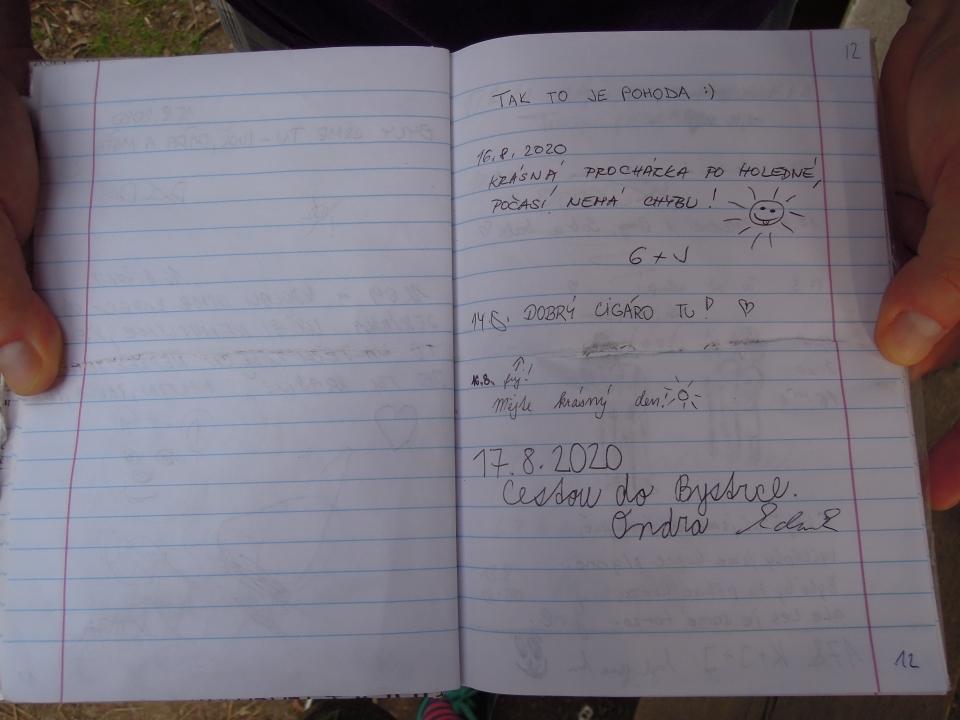 12
TAK TO JE POHODA :)
16.8.2020
KRÁSNÁ PROCHÁZKA PO HOLEDNÉ,
POČASÍ NEMÁ CHYBU!
G + J
14.8. DOBRÝ CIGÁRO TU!
16.8. fuj!
Mějte krásný den!
17.8.2020
Cestou do Bystrce.
Ondra
12